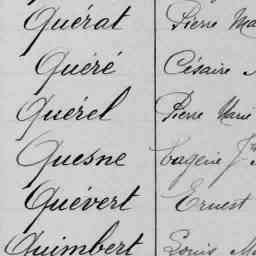 Quérat Pierre Ma
Quéré Césaire
Quérel Pierre Marie
Quesne Eugène J
Quévert Ernest
Quimbert Louis M